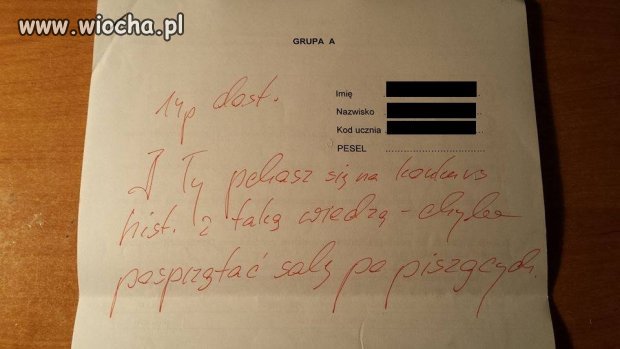 www.wiocha.pl
GRUPA A
14p dost.
Imię
Nazwisko
Kod ucznia
PESEL
I Ty pchasz się na konkurs
hist. z taką wiedzą - chyba
posprzątać salę po piszących.